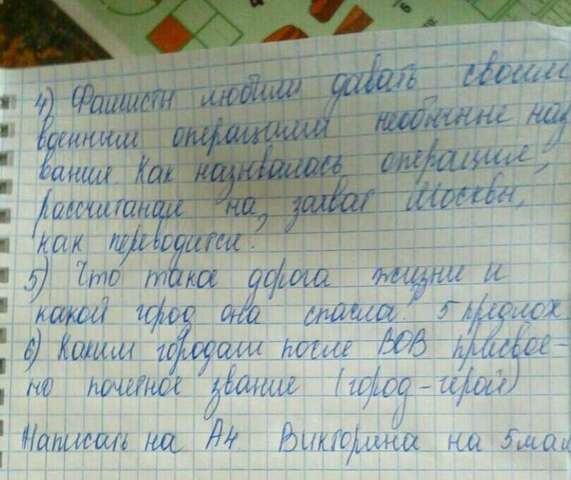 4) Фашисты любили давать своим
военным операциям необычные наз
вания. Как называлась операция,
рассчитаная на захват Москвы,
как переводится?
5) Что такое дорога жизни и
какой город она спасла? 5 предлож
6) Каким городам после ВОВ присвое-
но почетное звание (город-герой)
Написать на А4 Викторина на 5 мая